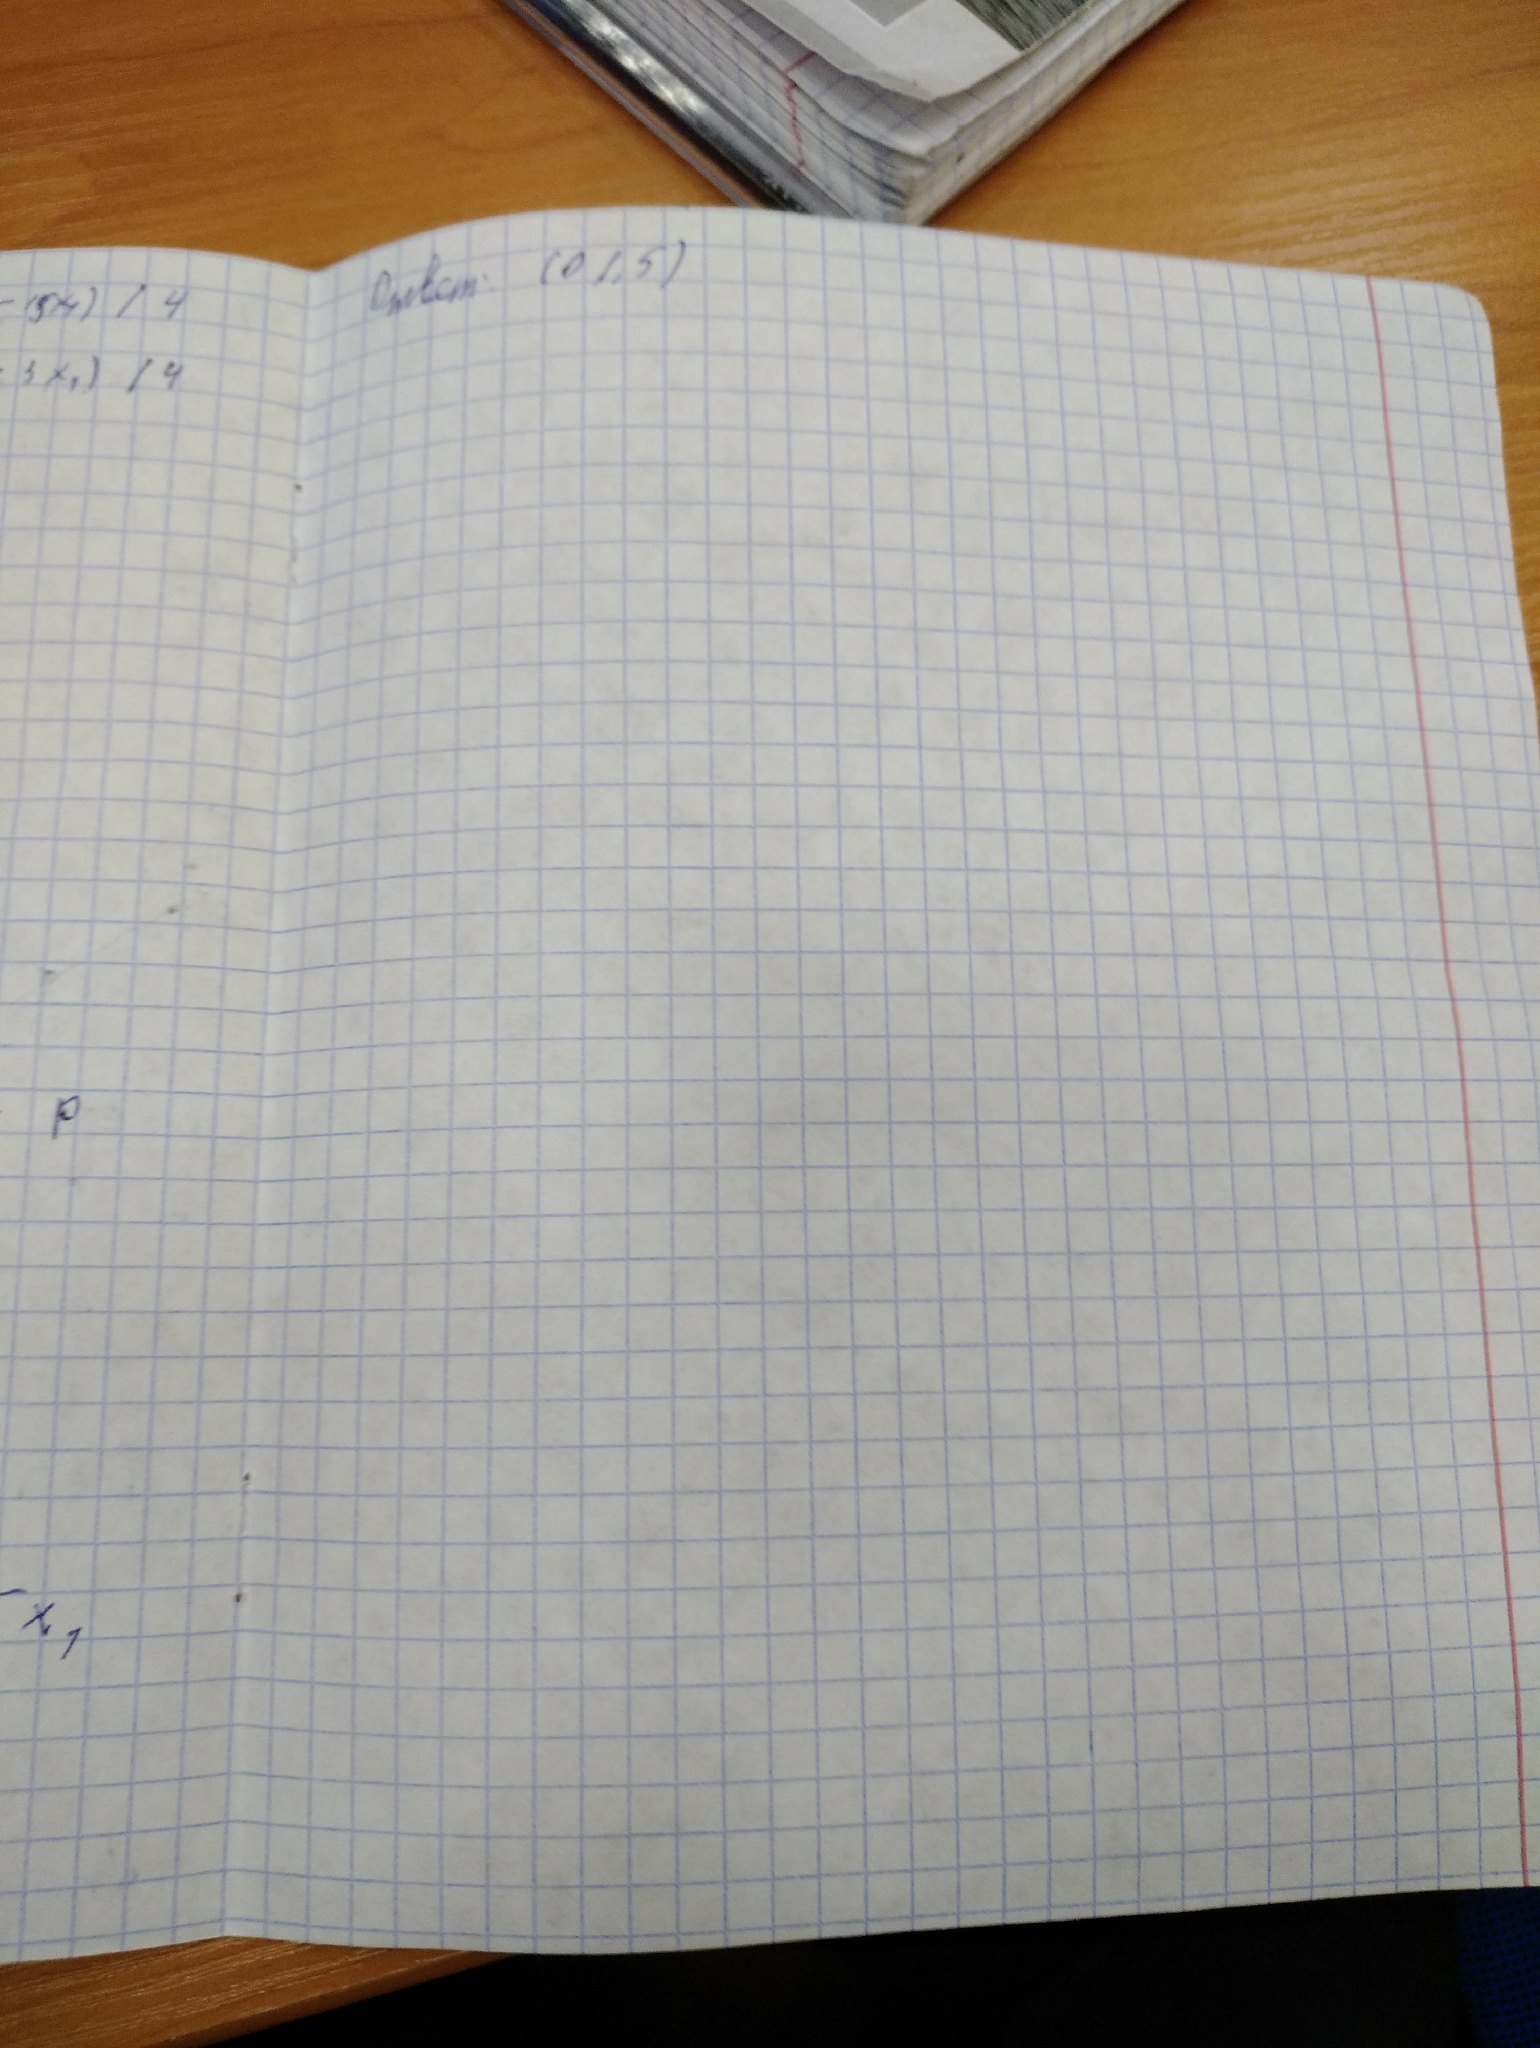 - 3x₁) / 4
- 3x₁) / 4
P
x₁
Ответ: (0 1,5)